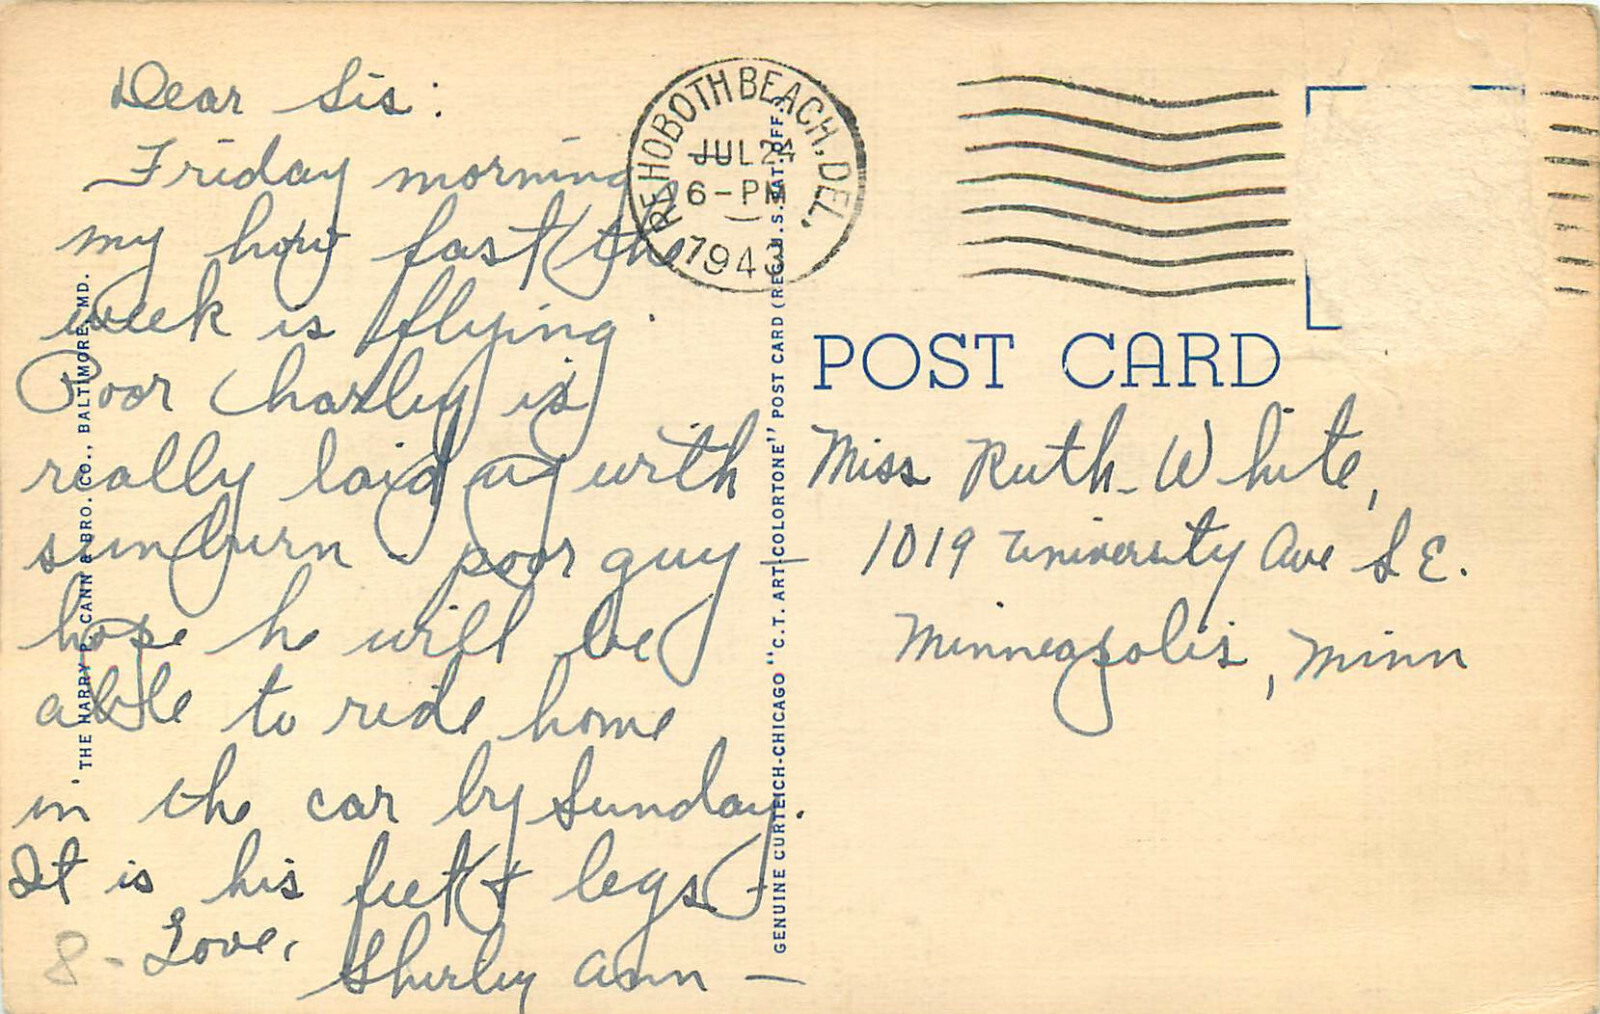 Dear Sis:
Friday morning
my how fast the
week is flying.
Poor Charley is
really laid up with
sunburn - poor guy -
hope he will be
able to ride home
in the car by Sunday.
It is his feet & legs -
Love,
Shirley Ann -
8-
THE HARRY P. CANN & BRO. CO., BALTIMORE, MD.
REHOBOTH BEACH, DEL.
JUL 24
6-PM
1943
GENUINE CURTEICH-CHICAGO "C.T. ART-COLORTONE" POST CARD (REG. U.S. PAT. OFF.)
POST CARD
Miss Ruth White,
1019 University Ave S E.
Minneapolis, Minn